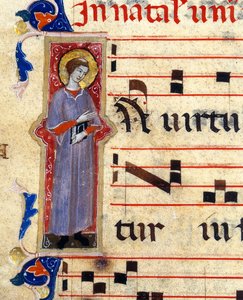 In natal' uni
IN uirtu
tur iu